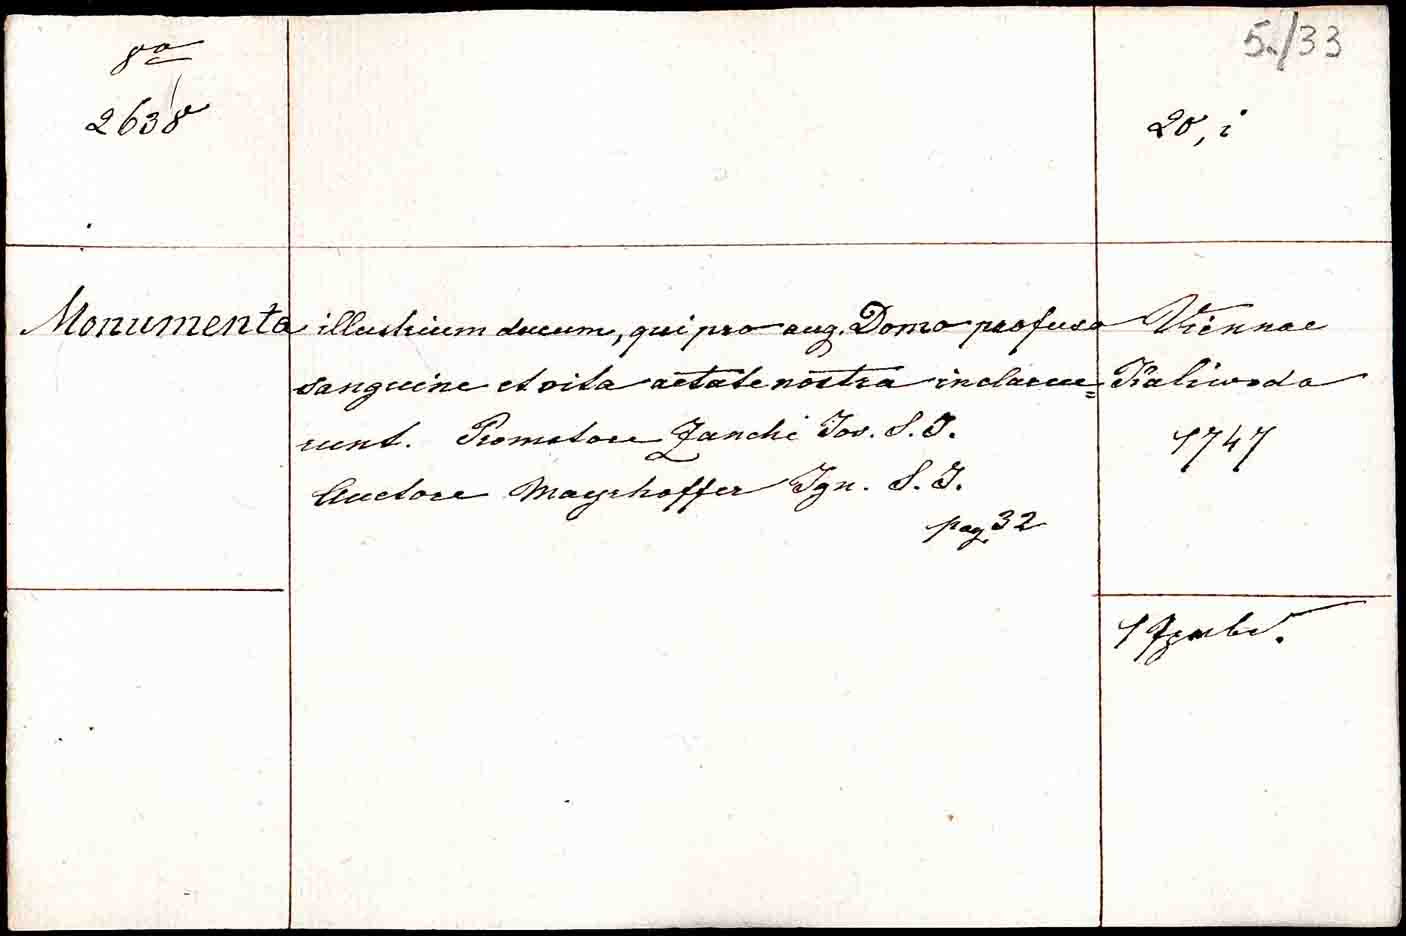 5./33
8º
2638
20, i
Monumenta illustrium ducum, qui pro aug. Domo profuso Viennae
sanguine et vita aetate nostra inclarue= Kaliwoda
runt. Promotore Zanchi Jos. S. J. 1747
Auctore Mayrhoffer Ign. S. J.
pag 32
1